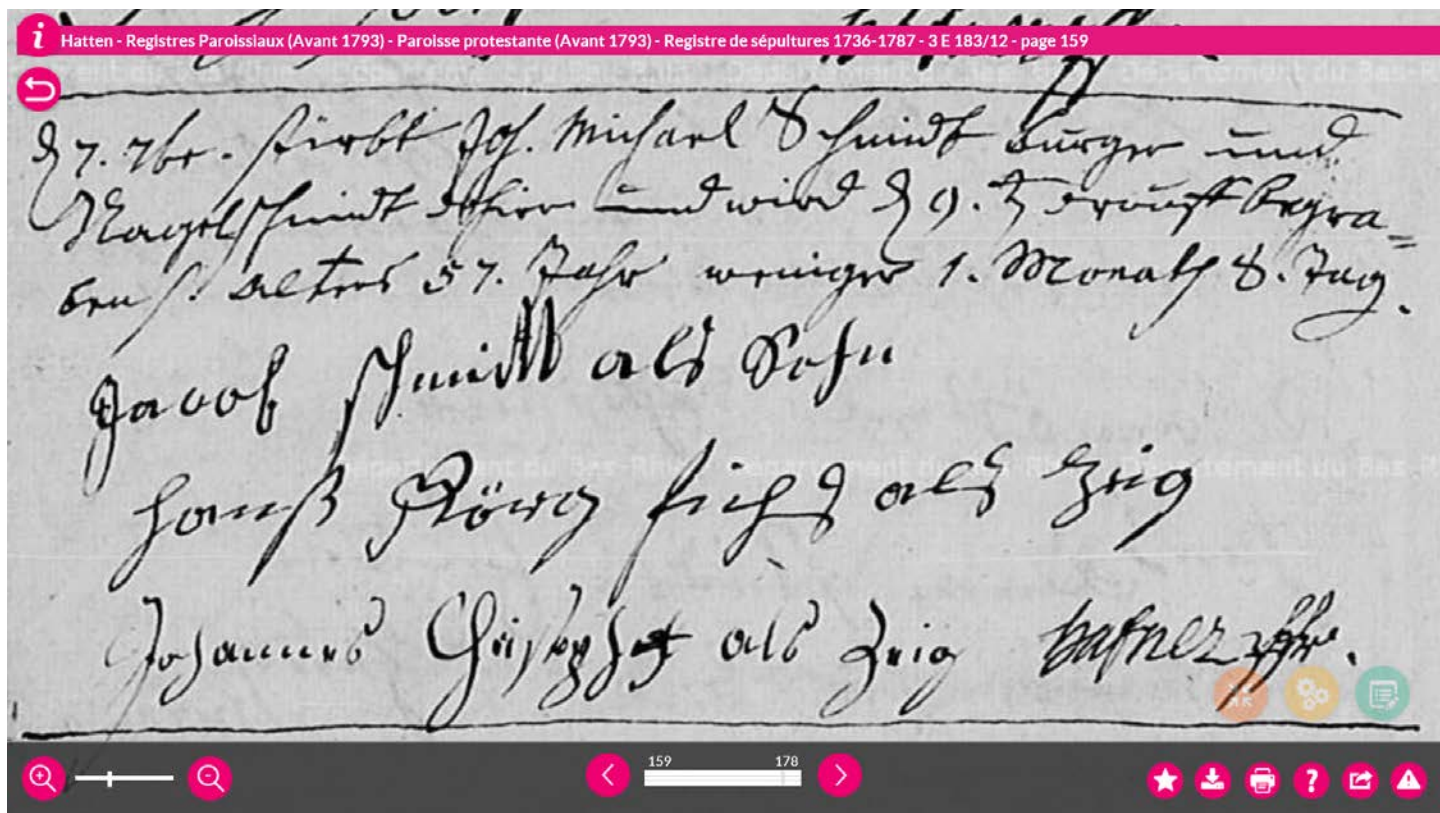 Hatten - Registres Paroissiaux (Avant 1793) - Paroisse protestante (Avant 1793) - Registre de sépultures 1736-1787 - 3 E 183/12 - page 159
d 7. 7br. stirbt Joh. Michael Schmidt burger und
Nagelschmidt dahier und wird d 9. drauff begra=
ben s. Alters 57. Jahr weniger 1. Monath 8. Tag.
Jacob schmidt als Sohn
hanß Görg als Zeig
Johannes als Zeig hafner pfr.
159 178